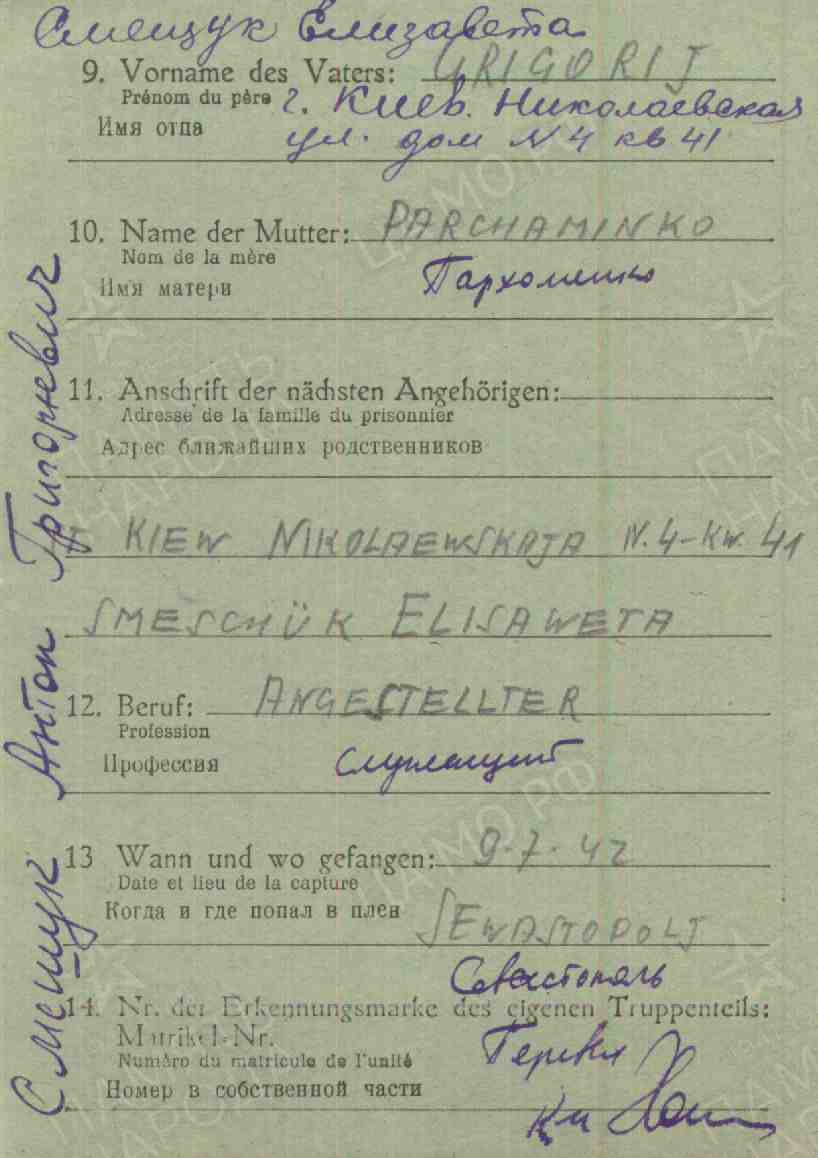 Смещук Елизавета
9. Vorname des Vaters: GRIGORIJ
Prénom du père г. Киев. Николаевская
Имя отца ул. дом N 4 кв 41
10. Name der Mutter: PARCHAMINKO
Nom de la mère
Имя матери Пархоменко
11. Anschrift der nächsten Angehörigen:
Adresse de la famille du prisonnier
Адрес ближайших родственников
KIEW NIKOLAEWSKAJA N. 4-KW. 41
SMESCHÜK ELISAWETA
12. Beruf: ANGESTELLTER
Profession
Профессия Служащий
13 Wann und wo gefangen: 9.7.42
Date et lieu de la capture
Когда и где попал в плен SEWASTOPOLJ
Севастополь
14. Nr. der Erkennungsmarke des eigenen Truppenteils:
Matrikel-Nr.
Numéro du matricule de l'unité
Номер в собственной части
Смещук Антон Григорьевич
ЦАМО.РФ